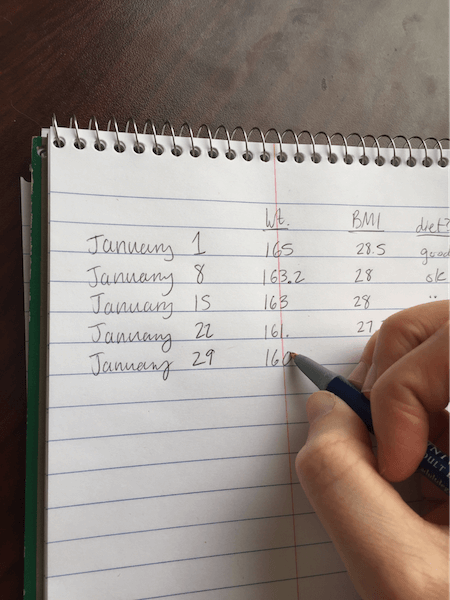 Wt. BMI diet?
January 1 165 28.5 good
January 8 163.2 28 ok
January 15 163 28 "
January 22 161. 27.
January 29 160